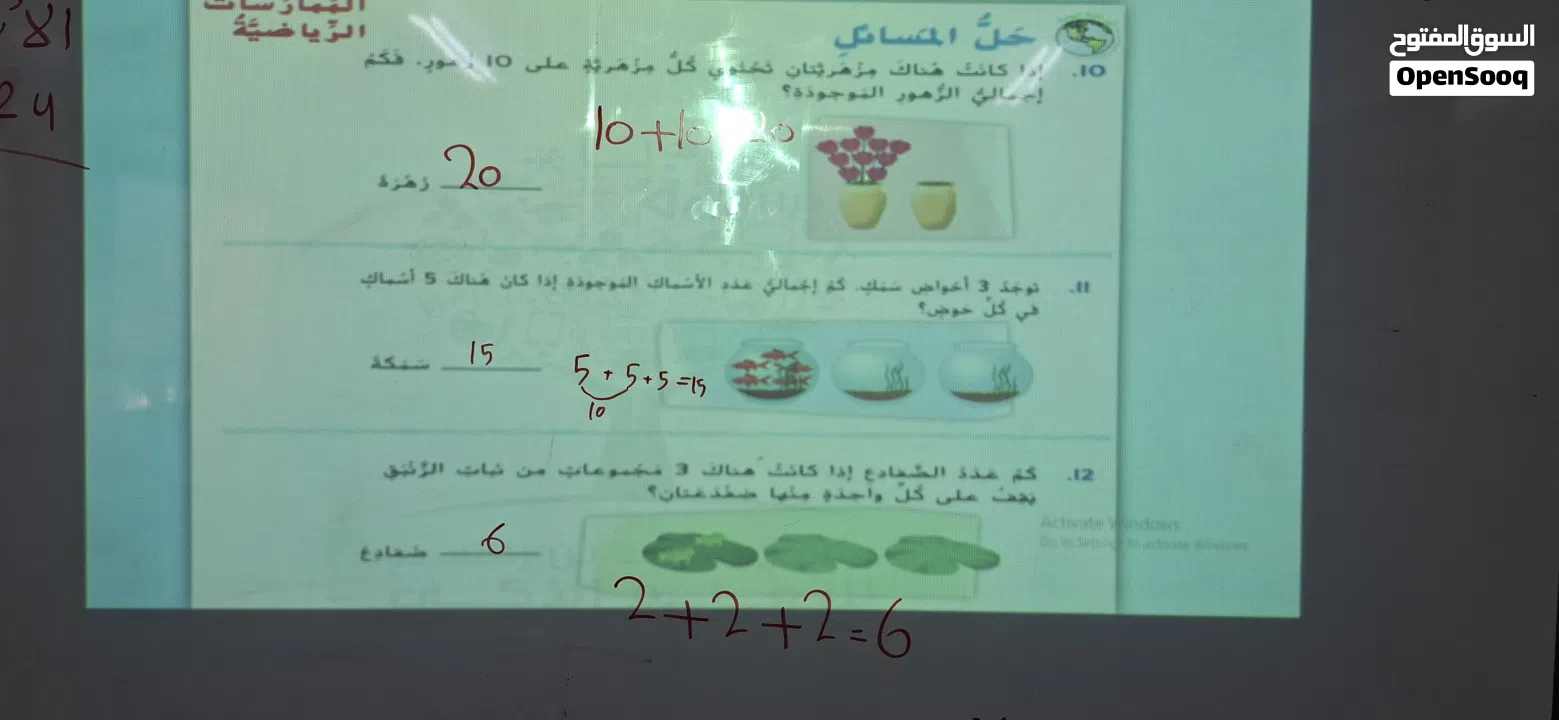 السوق المفتوح
OpenSooq
الممارسات
الرياضية
24
حل المسائل
10. إذا كانت هناك مزهريتان تحتوي كل مزهرية على 10 زهور. فكم
إجمالي الزهور الموجودة؟
10+10 20
20 زهرة
11. توجد 3 أحواض سمك. كم إجمالي عدد الأسماك الموجودة إذا كان هناك 5 أسماك
في كل حوض؟
15 سمكة
5 + 5 + 5 = 15
10
12. كم عدد الضفادع إذا كانت هناك 3 مجموعات من نبات الزنبق
يقف على كل واحدة منها ضفدعتان؟
6 ضفادع
2+2+2=6
Activate Windows
Go to Settings to activate Windows.